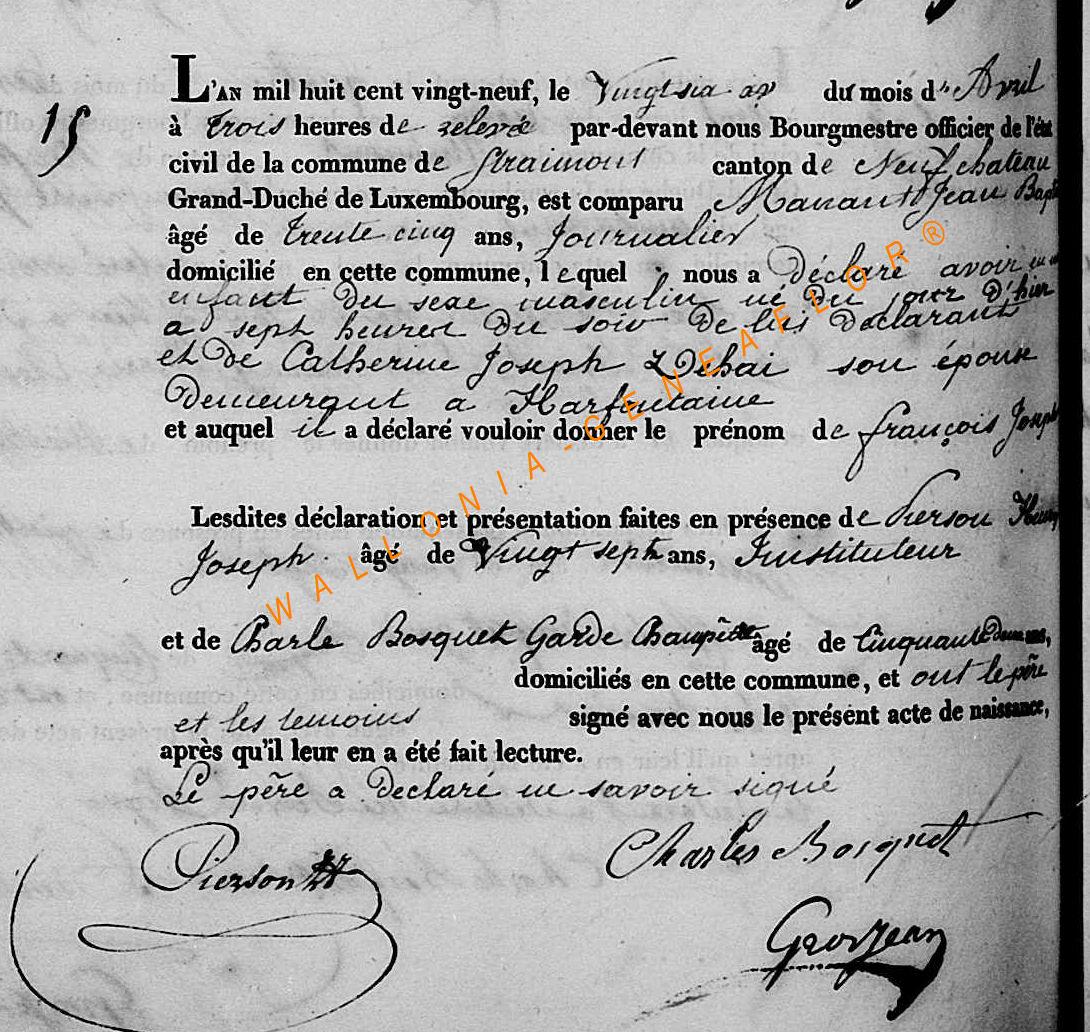 15
L'AN mil huit cent vingt-neuf, le Vingt six du mois d' Avril
à trois heures de relevé par-devant nous Bourgmestre officier de l'état
civil de la commune de Straimont canton de Neufchateau
Grand-Duché de Luxembourg, est comparu Manant Jean Bapt
âgé de trente cinq ans, Journalier
domicilié en cette commune, lequel nous a déclaré avoir eu un
enfant du sexe masculin né du jour d'hier
a sept heures du soir de lui déclarant
et de Catherine Joseph Dehai son épouse
demeurant a Harfontaine
et auquel il a déclaré vouloir donner le prénom de françois Joseph
Lesdites déclaration et présentation faites en présence de Pierson Henry
Joseph âgé de Vingt sept ans, Instituteur
et de Charle Bosquet Garde Champêtre âgé de Cinquante deux ans,
domiciliés en cette commune, et ont le père
et les temoins signé avec nous le présent acte de naissance,
après qu'il leur en a été fait lecture.
Le père a declaré ne savoir signé
Pierson
Charles Bosquet
Grosjean
WALLONIA-GENEAFLOR®